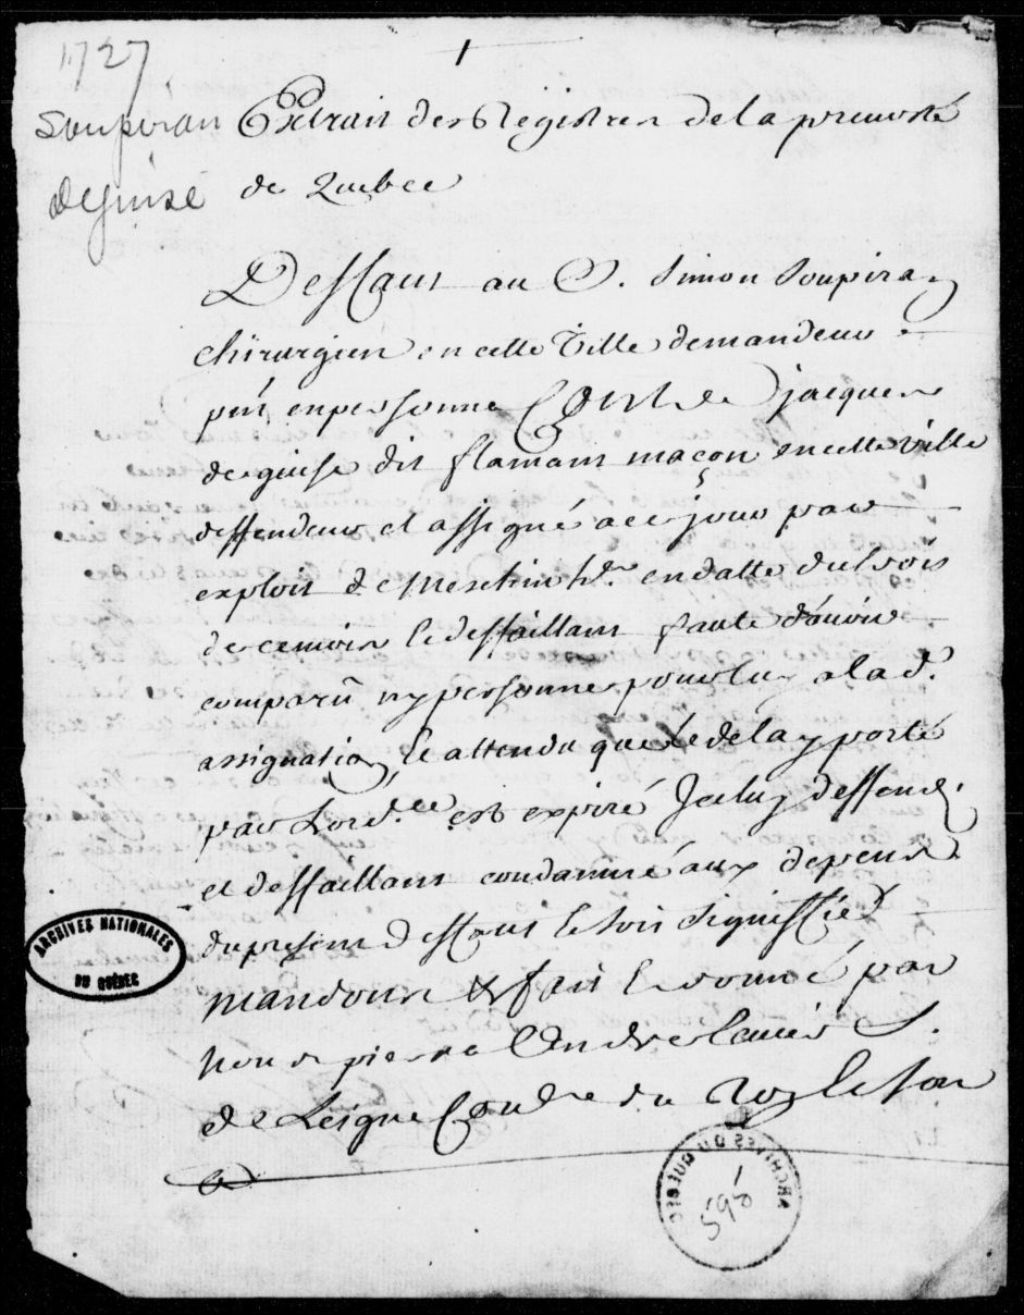 1727
1
Soupiran
deguise
Extrait des Registres de la prevosté
de Quebec
Deffaut au S. Simon Soupiran
chirurgien en cette Ville demandeur
pnt en personne Contre jacques
deguise dit flamant maçon en cette Ville
deffendeur et assigné a ce jour par
exploit de Meschin hr. en datte du trois
de ce mois le deffaillant faute d'avoir
comparu ny personne pour luy a la d.
assignation, et attendu que le delay porté
par Lord.ce est expiré Iceluy deffend.
et deffaillant condamné aux depens
du present deffaut et soit signiffié
mandons &c fait et donné par
nous pierre André sieur
de Leigne Con.er du Roy et son
ARCHIVES NATIONALES
DU QUÉBEC
ARCHIVES DU QUEBEC
598